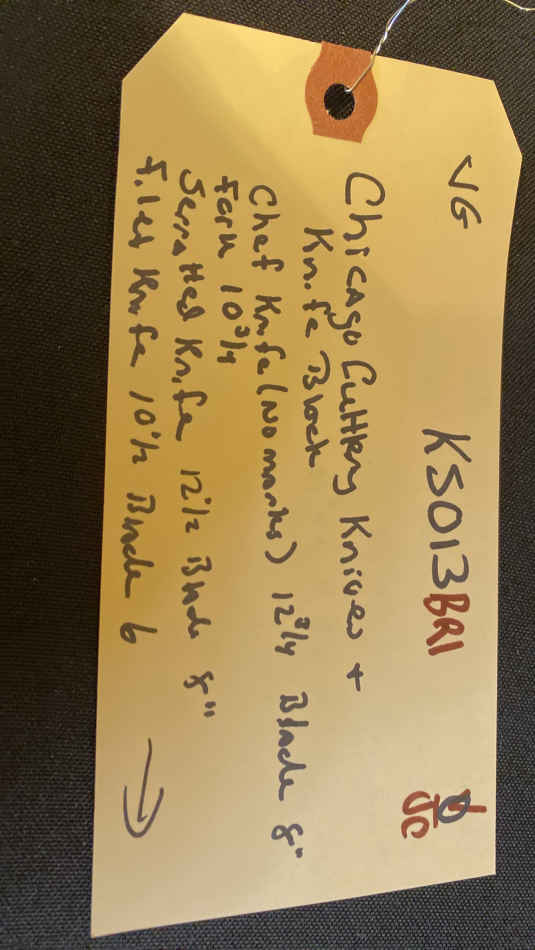 VG KS013 BRI
JC
Chicago Cuttery Knives +
Knife Block
Chef Knife (No marks) 12 3/4 Blade 8"
Fork 10 3/4
Serrated Knife 12 1/2 Blade 8"
Filet Knife 10 1/2 Blade 6 →